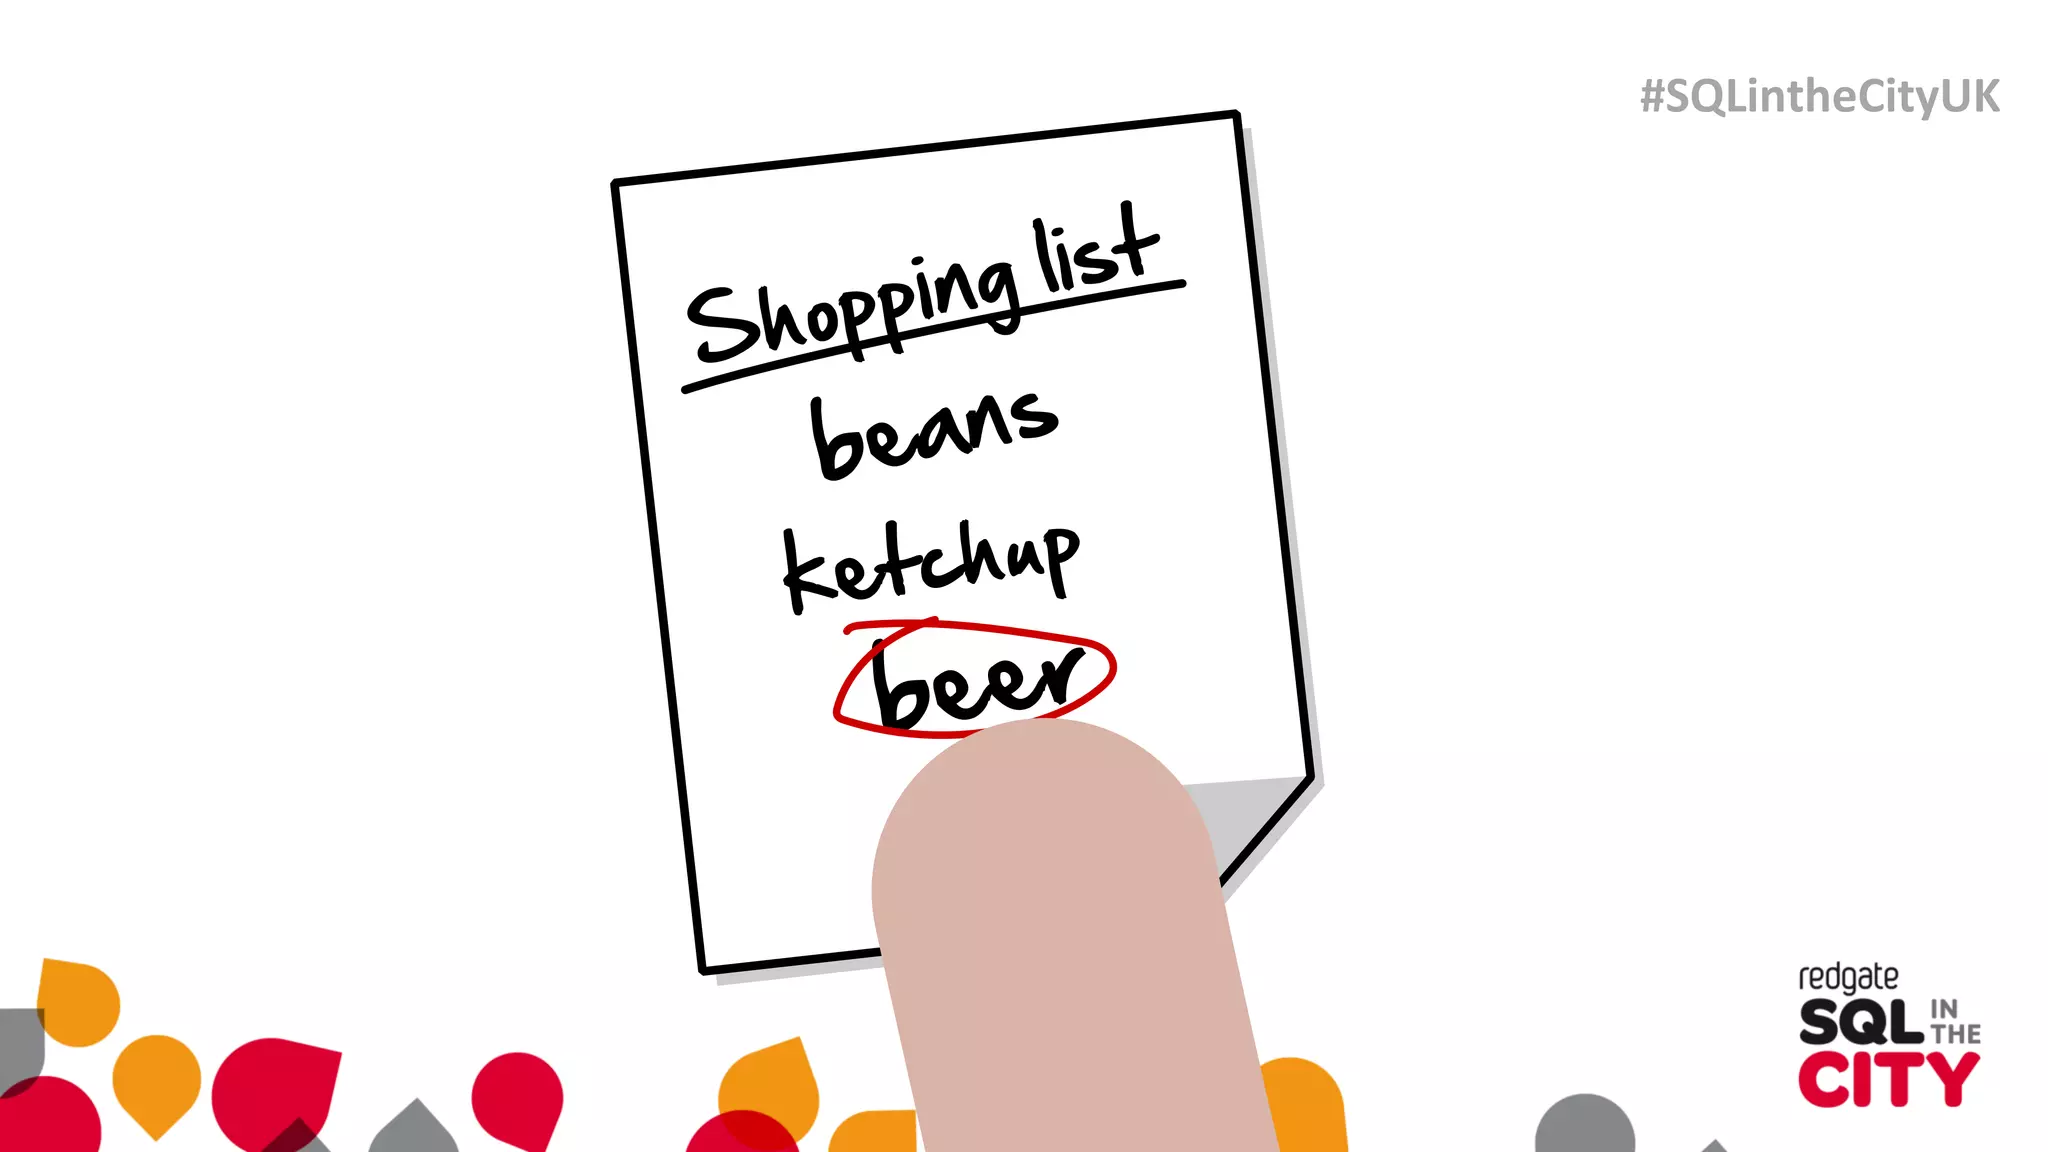 #SQLintheCityUK
Shopping list
beans
ketchup
beer
redgate
SQL IN THE
CITY